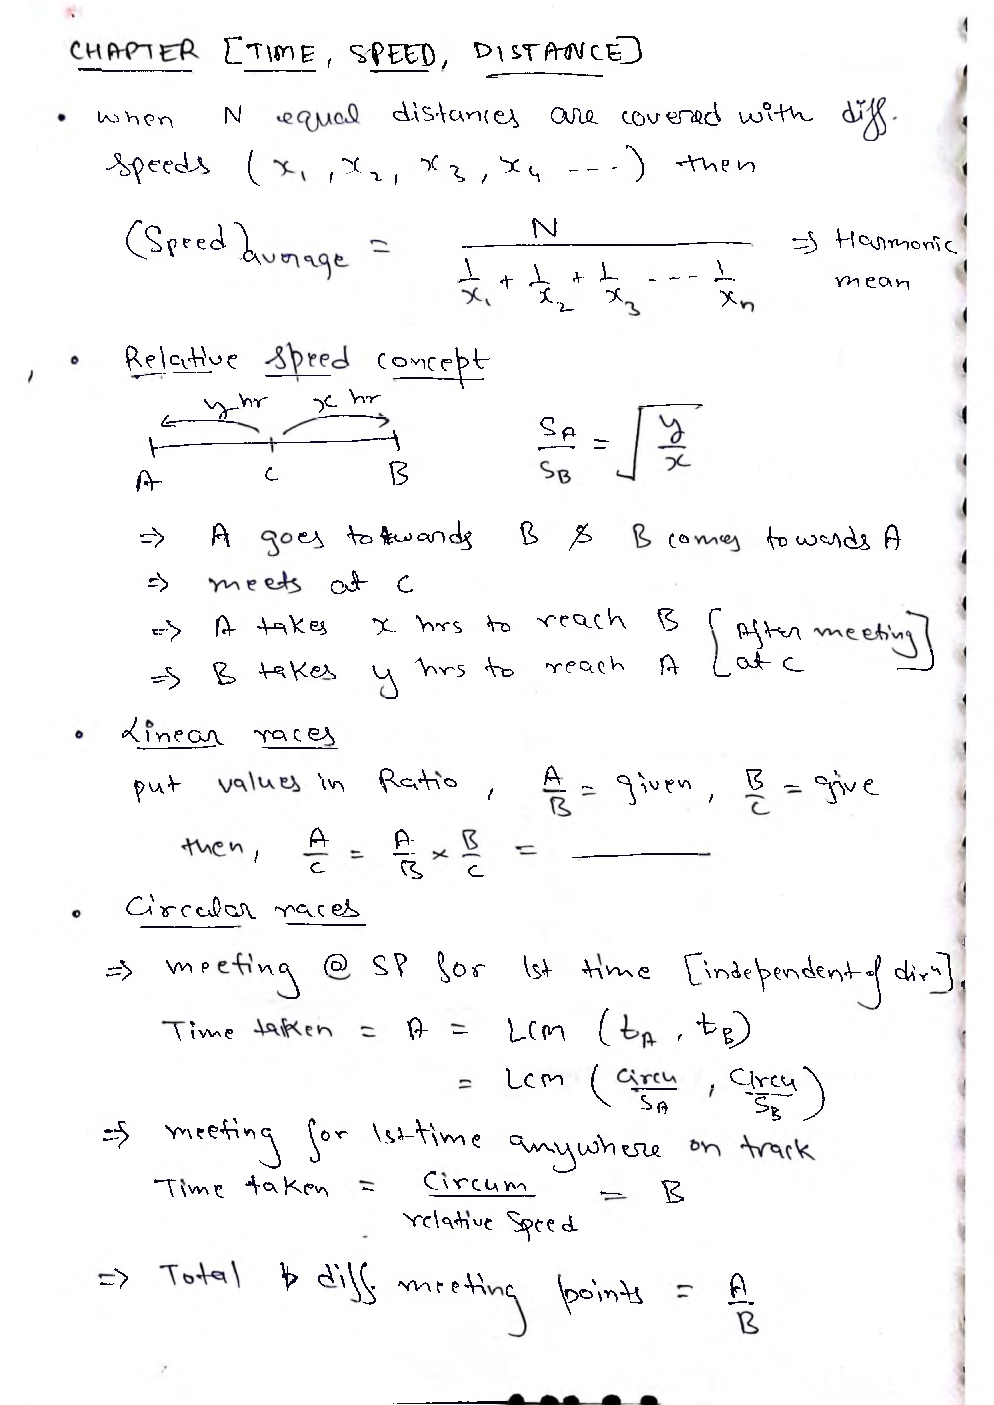 CHAPTER [TIME, SPEED, DISTANCE]
• when N equal distances are covered with diff.
speeds (x₁, x₂, x₃, x₄ ----) then
(Speed)average = N / (1/x₁ + 1/x₂ + 1/x₃ --- 1/xₙ) ⇒ Harmonic mean
• Relative speed concept
y hr x hr
A C B
S_A/S_B = √(y/x)
⇒ A goes to towards B & B comes towards A
⇒ meets at C
⇒ A takes x hrs to reach B [After meeting
⇒ B takes y hrs to reach A at C]
• Linear races
put values in Ratio, A/B = given, B/C = give
then, A/C = A/B × B/C = ______
• Circular races
⇒ meeting @ SP for 1st time [independent of dirⁿ].
Time taken = A = LCM (t_A, t_B)
= LCM (Circu/S_A, Circu/S_B)
⇒ meeting for 1st time anywhere on track
Time taken = Circum / relative Speed = B
⇒ Total diff. meeting points = A/B